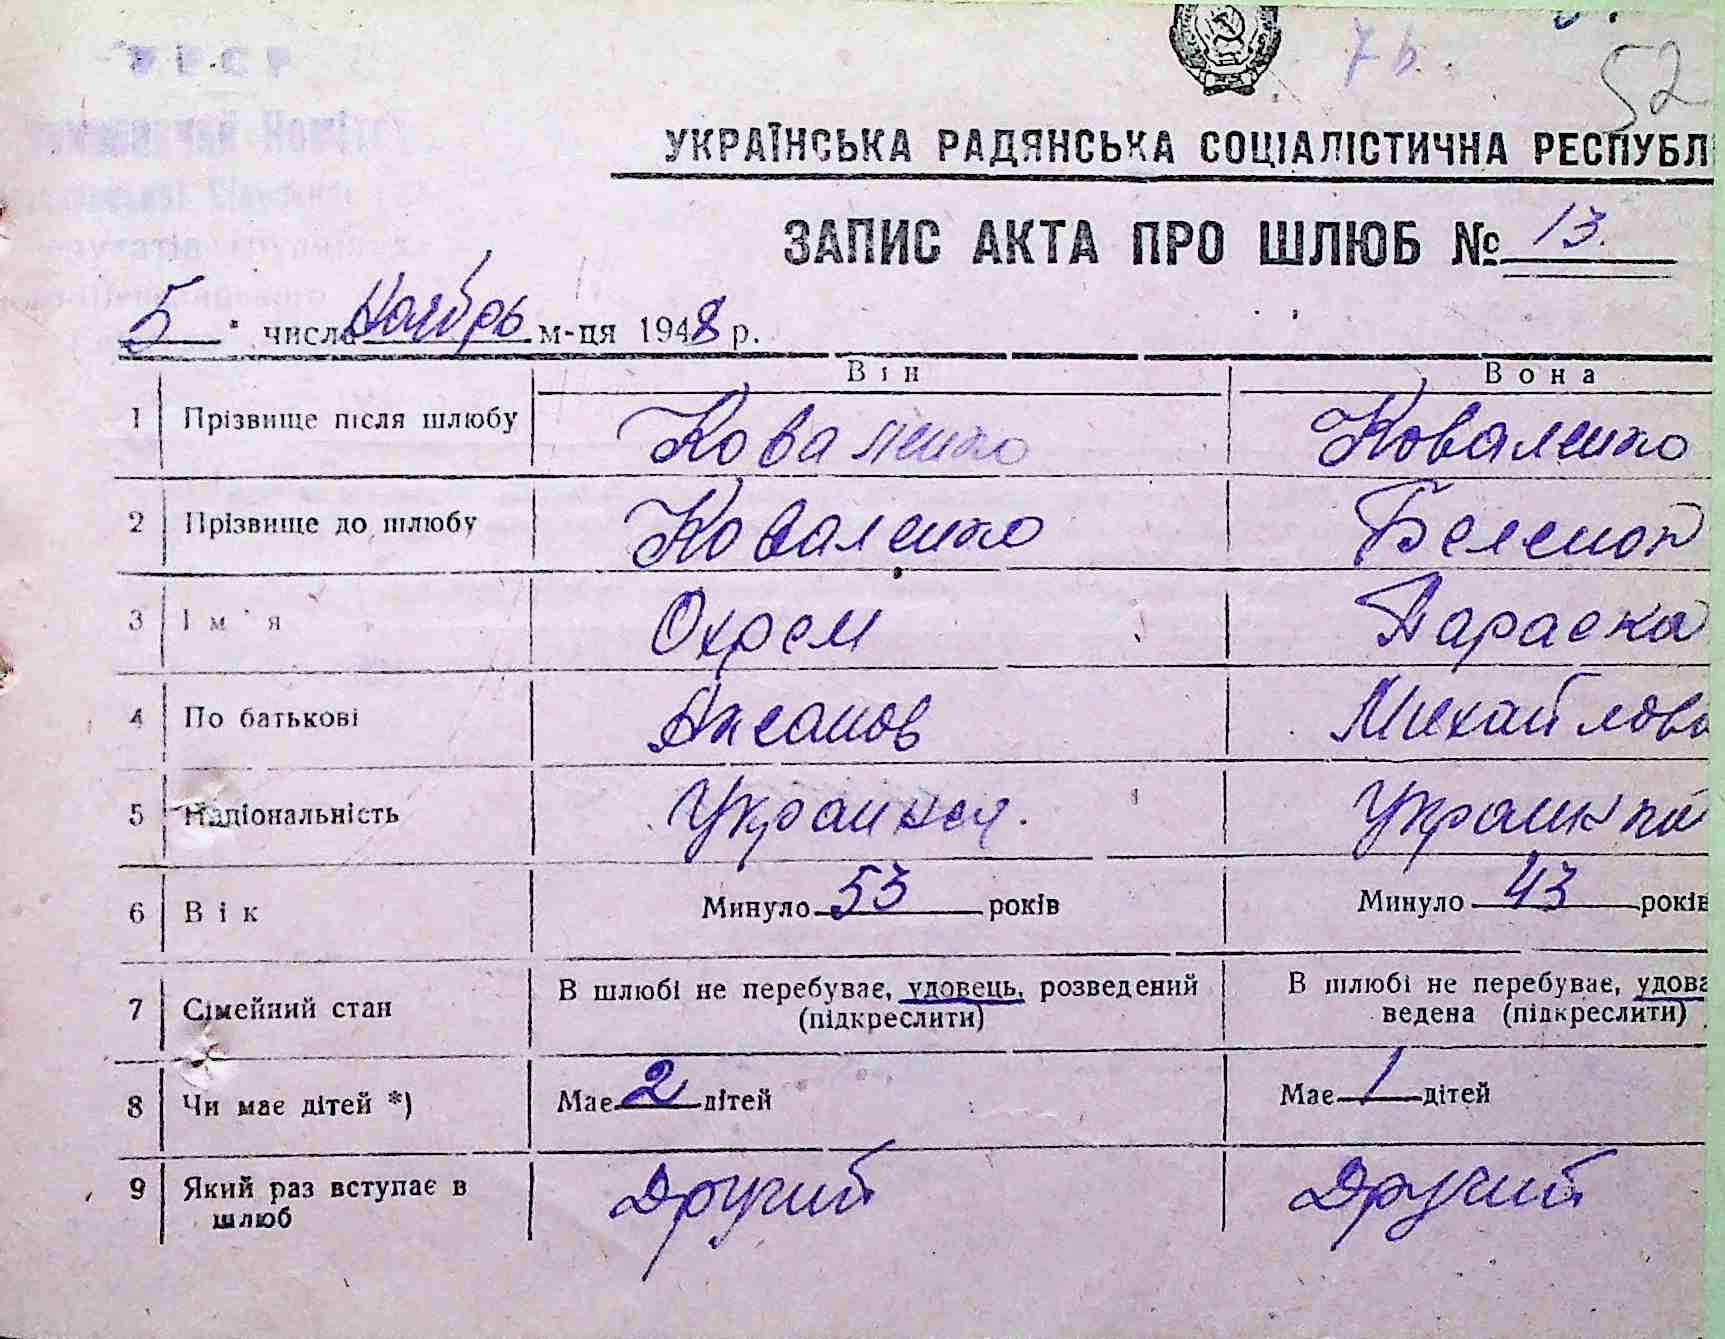 7 b.
52
УКРАЇНСЬКА РАДЯНСЬКА СОЦІАЛІСТИЧНА РЕСПУБЛ
ЗАПИС АКТА ПРО ШЛЮБ № 13.
5 " числа Ноябрь м-ця 1948 р.
Він Вона
1 Прізвище після шлюбу Коваленко Коваленко
2 Прізвище до шлюбу Коваленко
3 Ім'я Охрем Параска
4 По батькові Михайлова
5 Національність Украинец. Украинка
6 Вік Минуло 53 років Минуло 43 років
7 Сімейний стан В шлюбі не перебуває, удовець, розведений В шлюбі не перебуває, удова
(підкреслити) ведена (підкреслити)
8 Чи має дітей *) Має 2 дітей Має 1 дітей
9 Який раз вступає в Другий Другий
шлюб